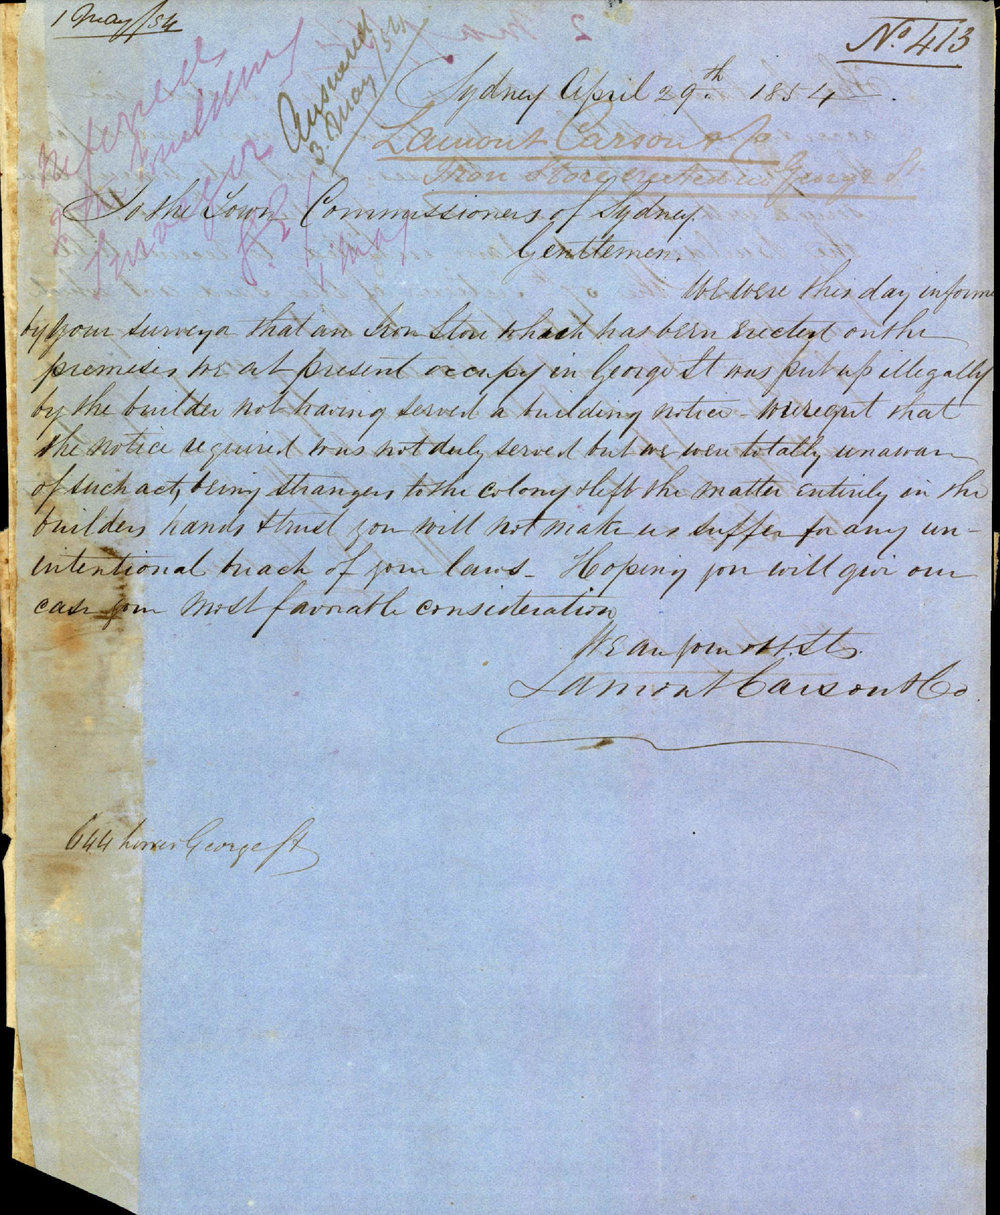 1 May/54
No 413
Referred
Answered
3. May/54
Sydney April 29th 1854
Lamont Carson & Co
Iron Store erected in George St.
To the Town Commissioners of Sydney
Gentlemen.
We were this day informe
by your surveyor that an Iron Store which has been Erected on the
premises we at present occupy in George St was put up illegally
by the builder not having served a building notice - We regret that
the notice required was not duly served but we were totally unaware
of such act, being strangers to the colony & left the matter entirely in the
builders hands & trust you will not make us suffer for any un-
intentional breach of your laws - Hoping you will give our
case your most favorable consideration
We are your obt. Sts.
Lamont Carson & Co
644 Lower George St